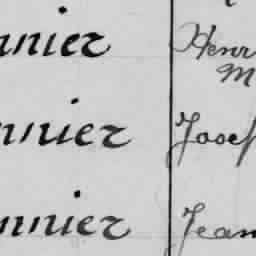 nnier Henr
M
nnier Josef
nnier Jean